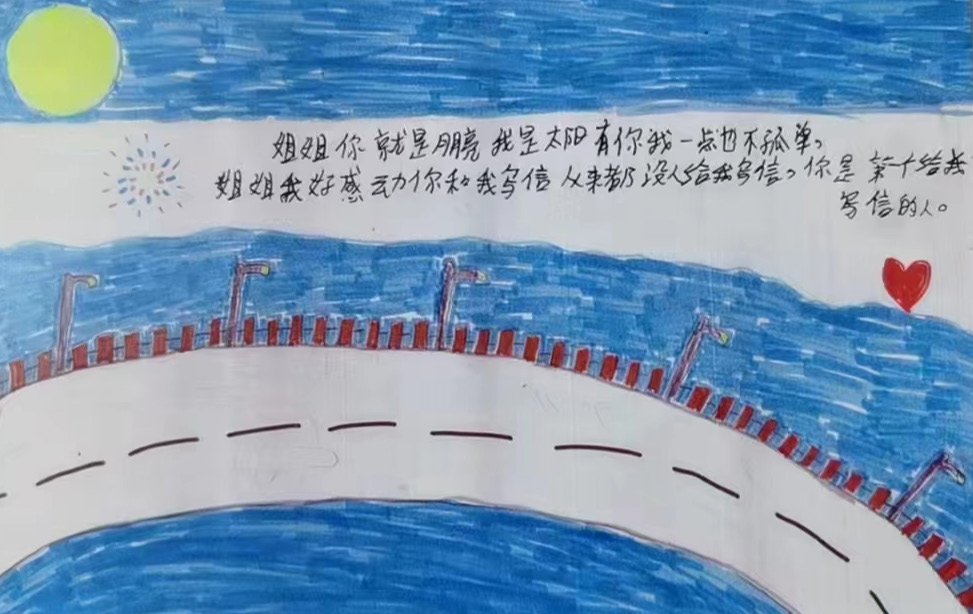 姐姐你就是月亮我是太阳有你我一点也不孤单。
姐姐我好感动你和我写信从来都没人给我写信。你是第一个给我
写信的人。